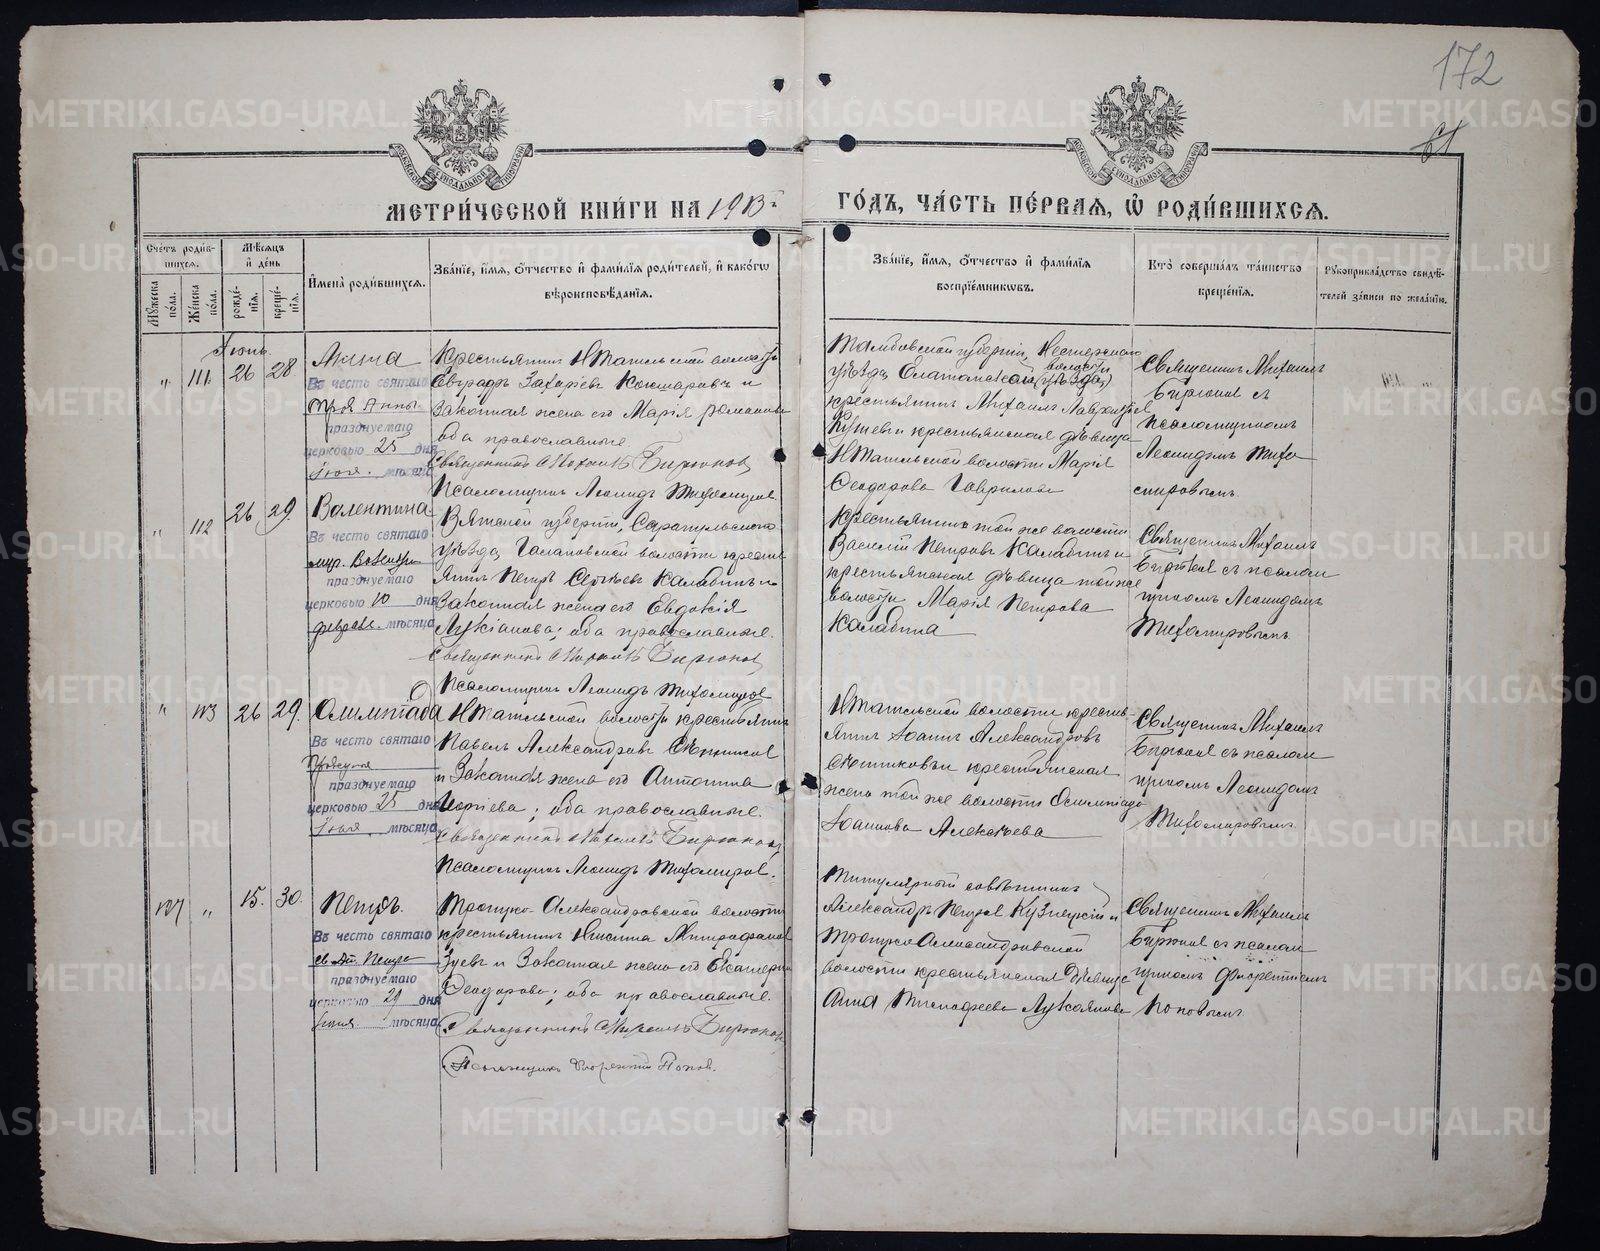 172
61
МЕТРИ́ЧЕСКОЙ КНИ́ГИ НА 1913 й ГО́ДЪ, ЧА́СТЬ ПЕ́РВАЯ, Ѡ РОДИ́ВШИХСЯ.
Сче́тъ роди́в-
шихся.
Му́жеска по́ла.
Же́нска по́ла.
Мѣ́сяцъ и де́нь
рожде́-
нїя.
креще́-
нїя.
Имена̀ роди́вшихся.
Зва́нїе, и́мя, о́тчество и фами́лїя роди́телей, и како́гѡ
вѣроисповѣ́данїя.
Зва́нїе, и́мя, о́тчество и фами́лїя
воспрїе́мникѡвъ.
Кто̀ соверша́лъ та́инство
креще́нїя.
Рукоприкла́дство свидѣ́-
телей за́писи по жела́нїю.
Іюнь
" 111 26 28
Анна
Въ честь святаго
прав Анны
празднуемаго
церковью 25 дня
Іюля мѣсяца
Крестьянинъ волости
Евграфъ Захаріевъ Кокшаровъ и
Законная жена его Марія Романова
оба православные.
Священникъ Михаилъ Бирюковъ
Псаломщикъ Леонидъ Тихомировъ
Тамбовской губерніи,
волости
уѣзда
крестьянинъ Михаилъ
и крестьянская дѣвица
волости Марія
Ѳеодорова Гаврилова
Священникъ Михаилъ
Бирюковъ съ
псаломщикомъ
Леонидомъ Тихо
мировымъ
" 112 26 29.
Валентина
Въ честь святаго
празднуемаго
церковью 10 дня
феврал. мѣсяца
Вятской губерніи, Сарапульскаго
уѣзда, волости кресть
янинъ Петръ Сергѣевъ Калабинъ и
Законная жена его Евдокія
Лукіанова; оба православные.
Священникъ Михаилъ Бирюковъ
Псаломщикъ Леонидъ Тихомировъ
Крестьянинъ той же волости
Василій Петровъ Калабинъ и
крестьянская дѣвица той же
волости Марія Петрова
Калабина
Священникъ Михаилъ
Бирюковъ съ псалом
щикомъ Леонидомъ
Тихомировымъ
" 113 26 29.
Олимпіада
Въ честь святаго
празднуемаго
церковью 25 дня
Іюля мѣсяца
волости крестьянинъ
Павелъ Александровъ
и Законная жена его Антонина
оба православные.
Священникъ Михаилъ Бирюковъ
Псаломщикъ Леонидъ Тихомировъ.
волости кресть
янинъ Іоаннъ Александровъ
и крестьянская
жена той же волости Олимпіада
Іоаннова Алексѣева
Священникъ Михаилъ
Бирюковъ съ псалом
щикомъ Леонидомъ
Тихомировымъ
107 " 15. 30.
Петръ.
Въ честь святаго
св Ап. Петра
празднуемаго
церковью 29 дня
Іюня мѣсяца
Троицко-Александровской волости
крестьянинъ Никита Митрофановъ
Зуевъ и Законная жена его Екатерина
Ѳеодорова; оба православные.
Священникъ Михаилъ Бирюковъ
Псаломщикъ Флорентій Поповъ.
Титулярный совѣтникъ
Александръ Петровъ Кузнецкій и
Троицко-Александровской
волости крестьянская дѣвица
Анна Тимофеева Лукоянова
Священникъ Михаилъ
Бирюковъ съ псалом
щикомъ Флорентіемъ
Поповымъ
METRIKI.GASO-URAL.RU